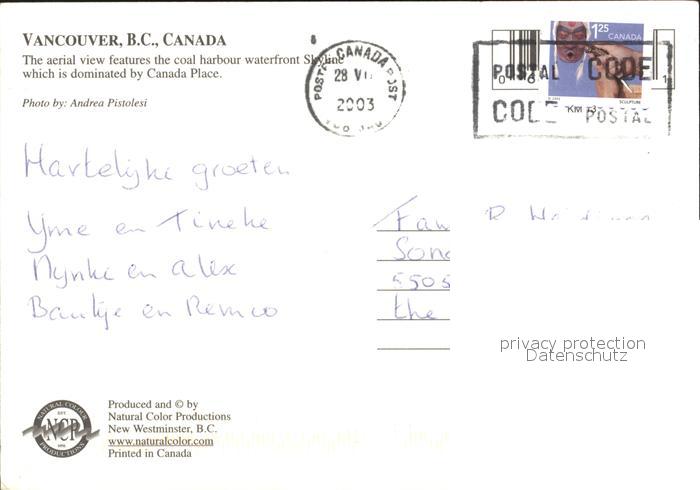 VANCOUVER, B.C., CANADA
The aerial view features the coal harbour waterfront Skyline
which is dominated by Canada Place.
Photo by: Andrea Pistolesi
POSTES CANADA POST
28 VII
2003
1.25 CANADA
SCULPTURE
POSTAL CODE
CODE POSTAL
Hartelijke groeten
Yme en Tineke
Nynke en Alex
Baukje en Remco
Fam
Son
5505
the
privacy protection
Datenschutz
NATURAL COLOUR
NCP
PRODUCTIONS
Produced and © by
Natural Color Productions
New Westminster, B.C.
www.naturalcolor.com
Printed in Canada